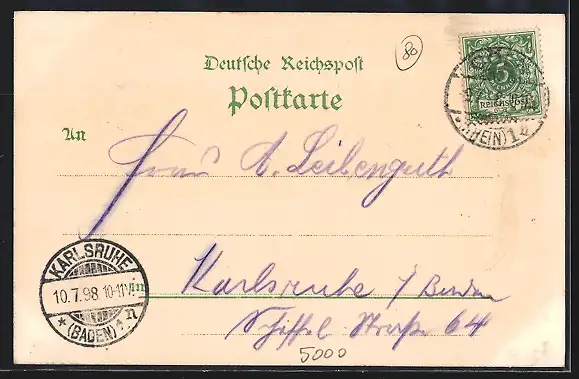 80
Deutsche Reichspost
Postkarte
5
REICHSPOST
(RHEIN) 1
An
Frau A. Leibenguth
KARLSRUHE
10.7.98 10-11V.
* (BADEN) 1 n
in
Karlsruhe / Baden
Schiffel Straße 64
5000